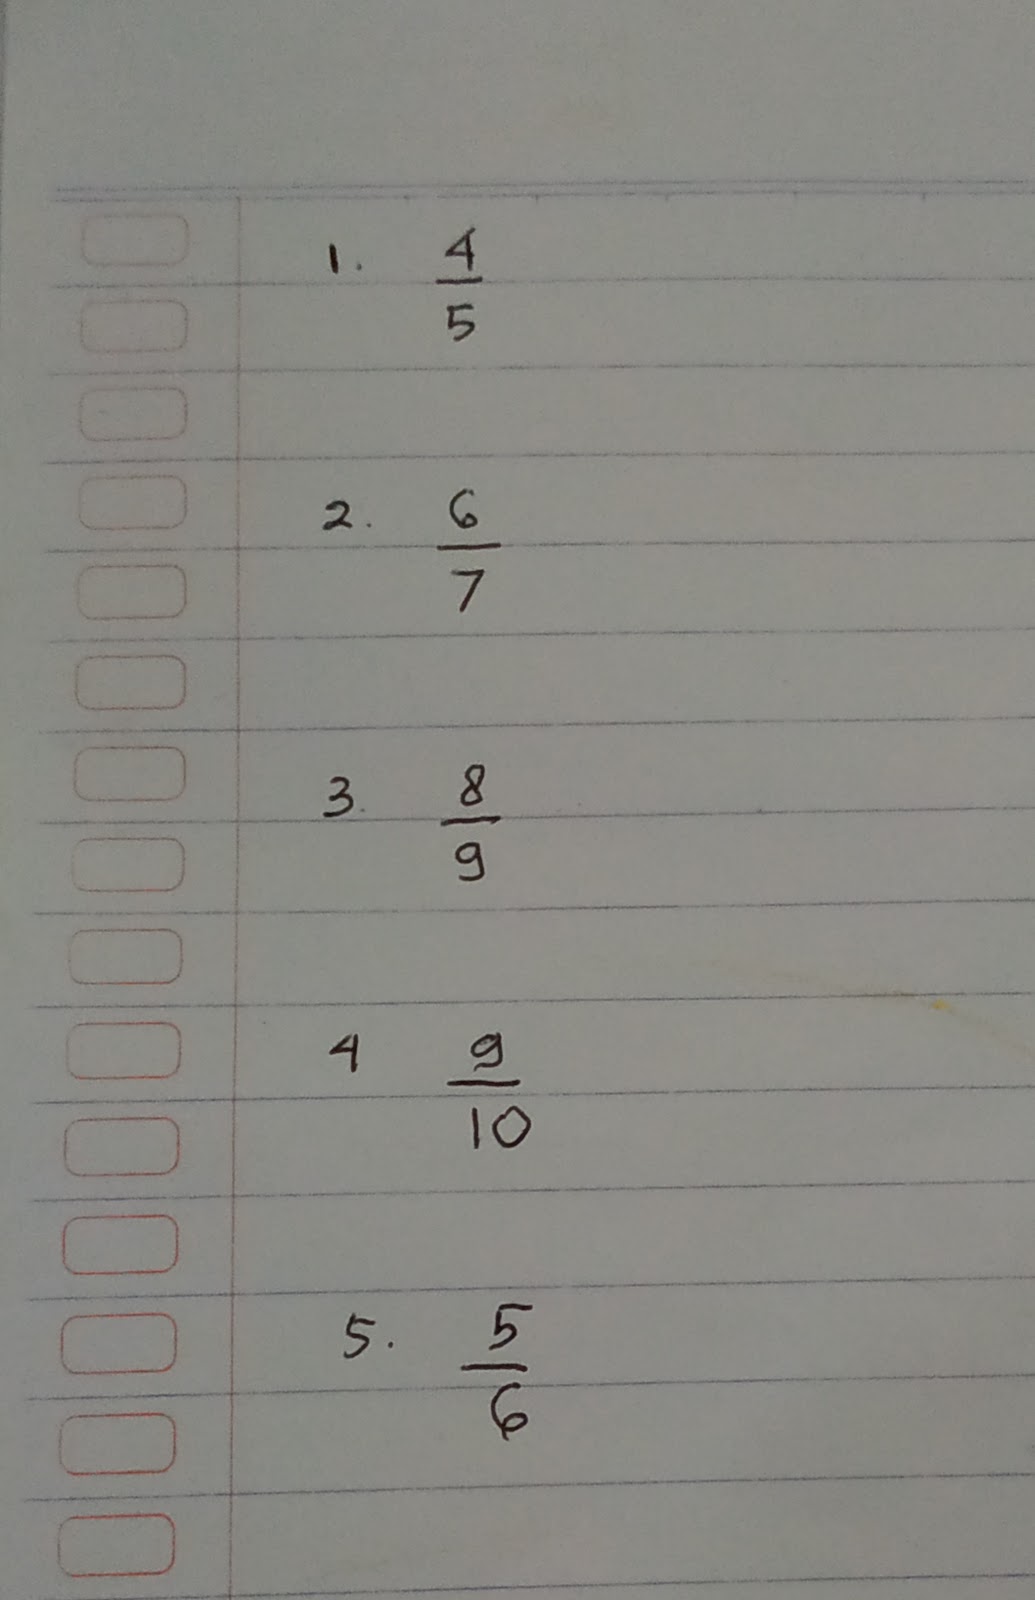 1. 4/5
2. 6/7
3. 8/9
4 9/10
5. 5/6